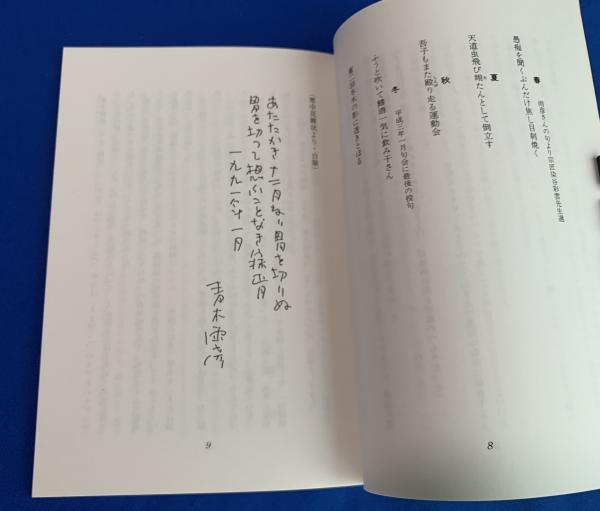 春
雨彦さんの句より宗匠染谷彩雲先生選
愚痴を聞くぶんだけ焦し目刺焼く
夏
天道虫飛び翔たんとして倒立す
秋
吾子もまた殿り走る運動会
冬
平成三年一月句会に最後の投句
ふうと吹いて鰭酒一気に飲み干さん
着ぶくれの影に透きとほる
8
(寒中見舞状より・自筆)
あたたかき十二月なり胃を切りぬ
胃を切って想ふことなき
一九九一年一月
青木雨彦
9